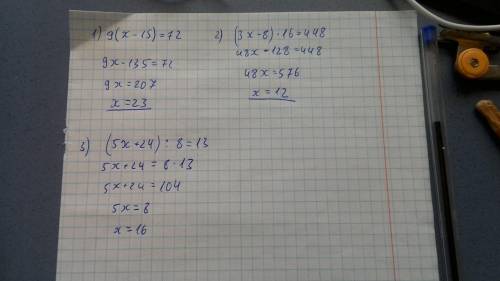 1) 9(x-15)=72
9x-135=72
9x=207
x=23
2) (3x-8)·16=448
48x-128=448
48x=576
x=12
3) (5x+24):8=13
5x+24=8·13
5x+24=104
5x=8
x=16